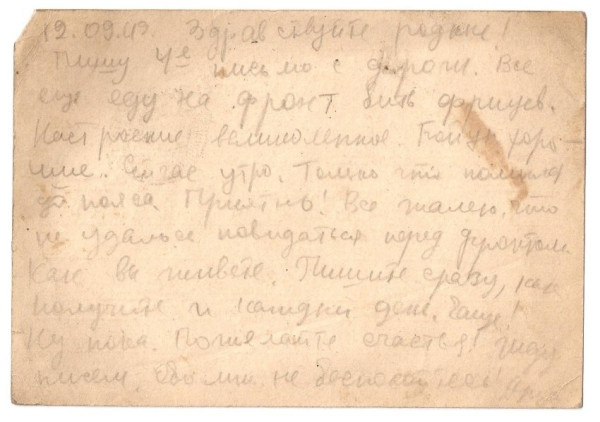 12.09.43. Здравствуйте родные!
Пишу 4е письмо с дороги. Все
еще еду на фронт бить фрицев.
Настроение великолепное. хоро-
шие. утро. Только что помылся
до пояса. Приятно! Все жалею, что
не удалось повидаться перед фронтом.
Как вы живете. Пишите сразу, как
получите и каждый день. Чаще!
Ну пока. Пожелайте счастья! Жду
писем. не беспокойтесь!